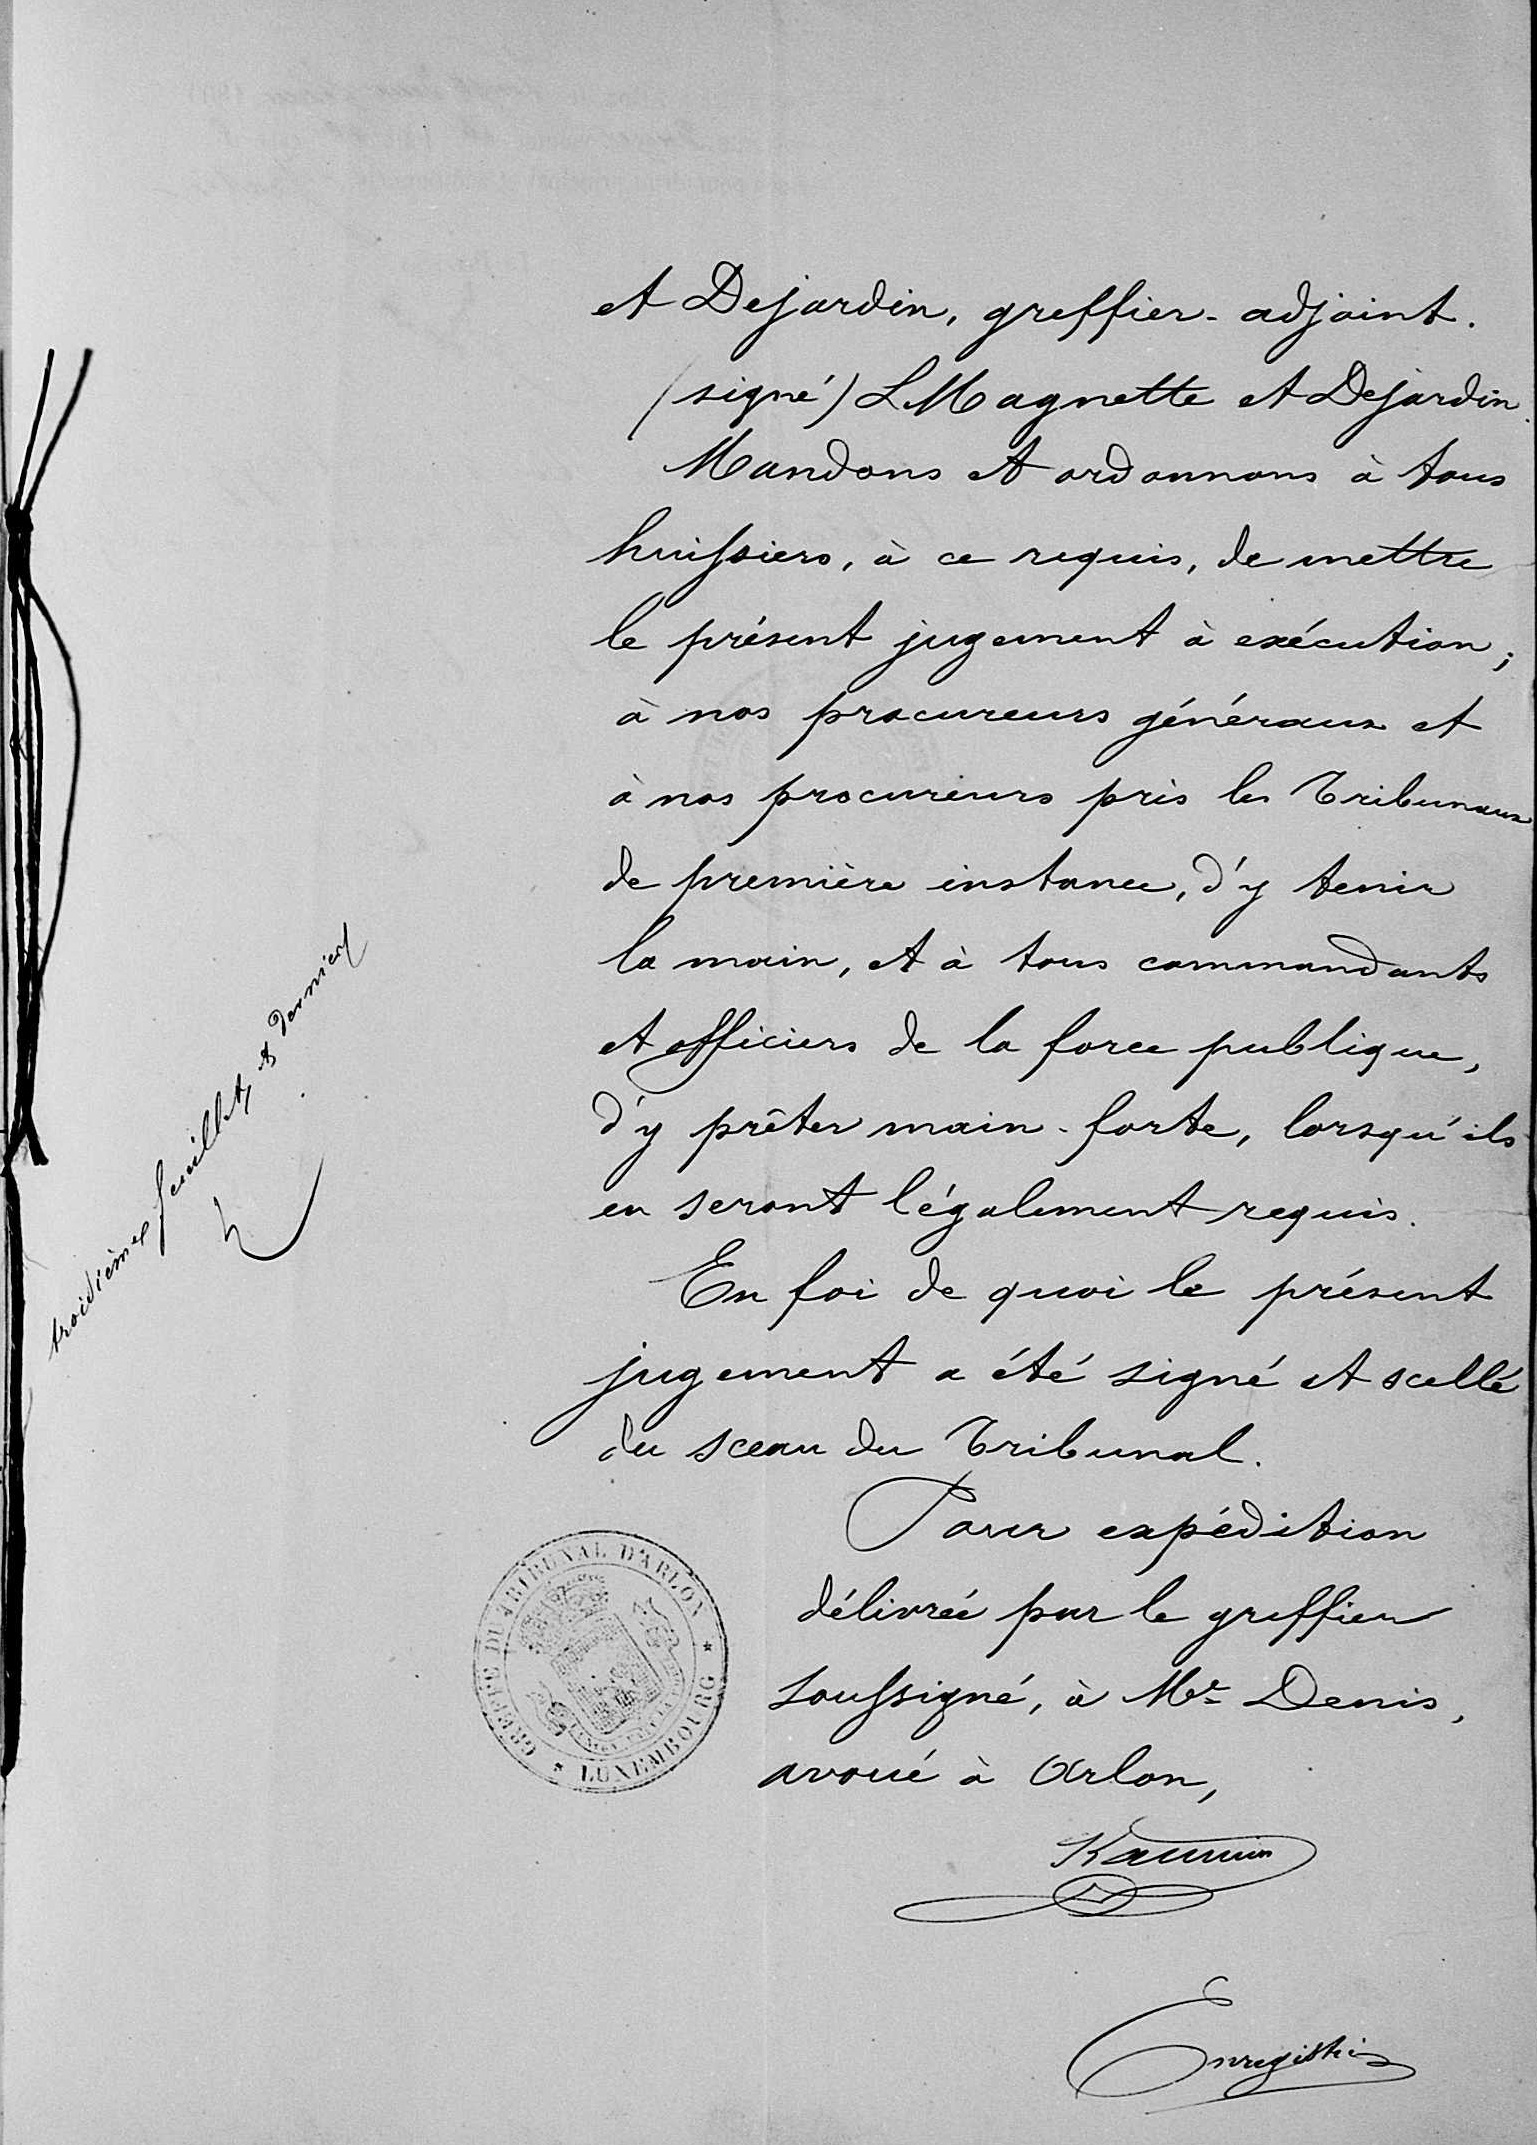 et Dejardin, greffier-adjoint.
(signé) L Magnette et Dejardin.
Mandons et ordonnons à tous
huissiers, à ce requis, de mettre
le présent jugement à exécution;
à nos procureurs généraux et
à nos procureurs près les Tribunaux
de première instance, d'y tenir
la main, et à tous commandants
et officiers de la force publique,
d'y prêter main-forte, lorsqu'ils
en seront légalement requis.
En foi de quoi le présent
jugement a été signé et scellé
du sceau du Tribunal.
Pour expédition
délivrée par le greffier
soussigné, à Me Denis,
avoué à Arlon,
Enregistré
troisième feuillet et dernier
GREFFE DU TRIBUNAL D'ARLON
* LUXEMBOURG *